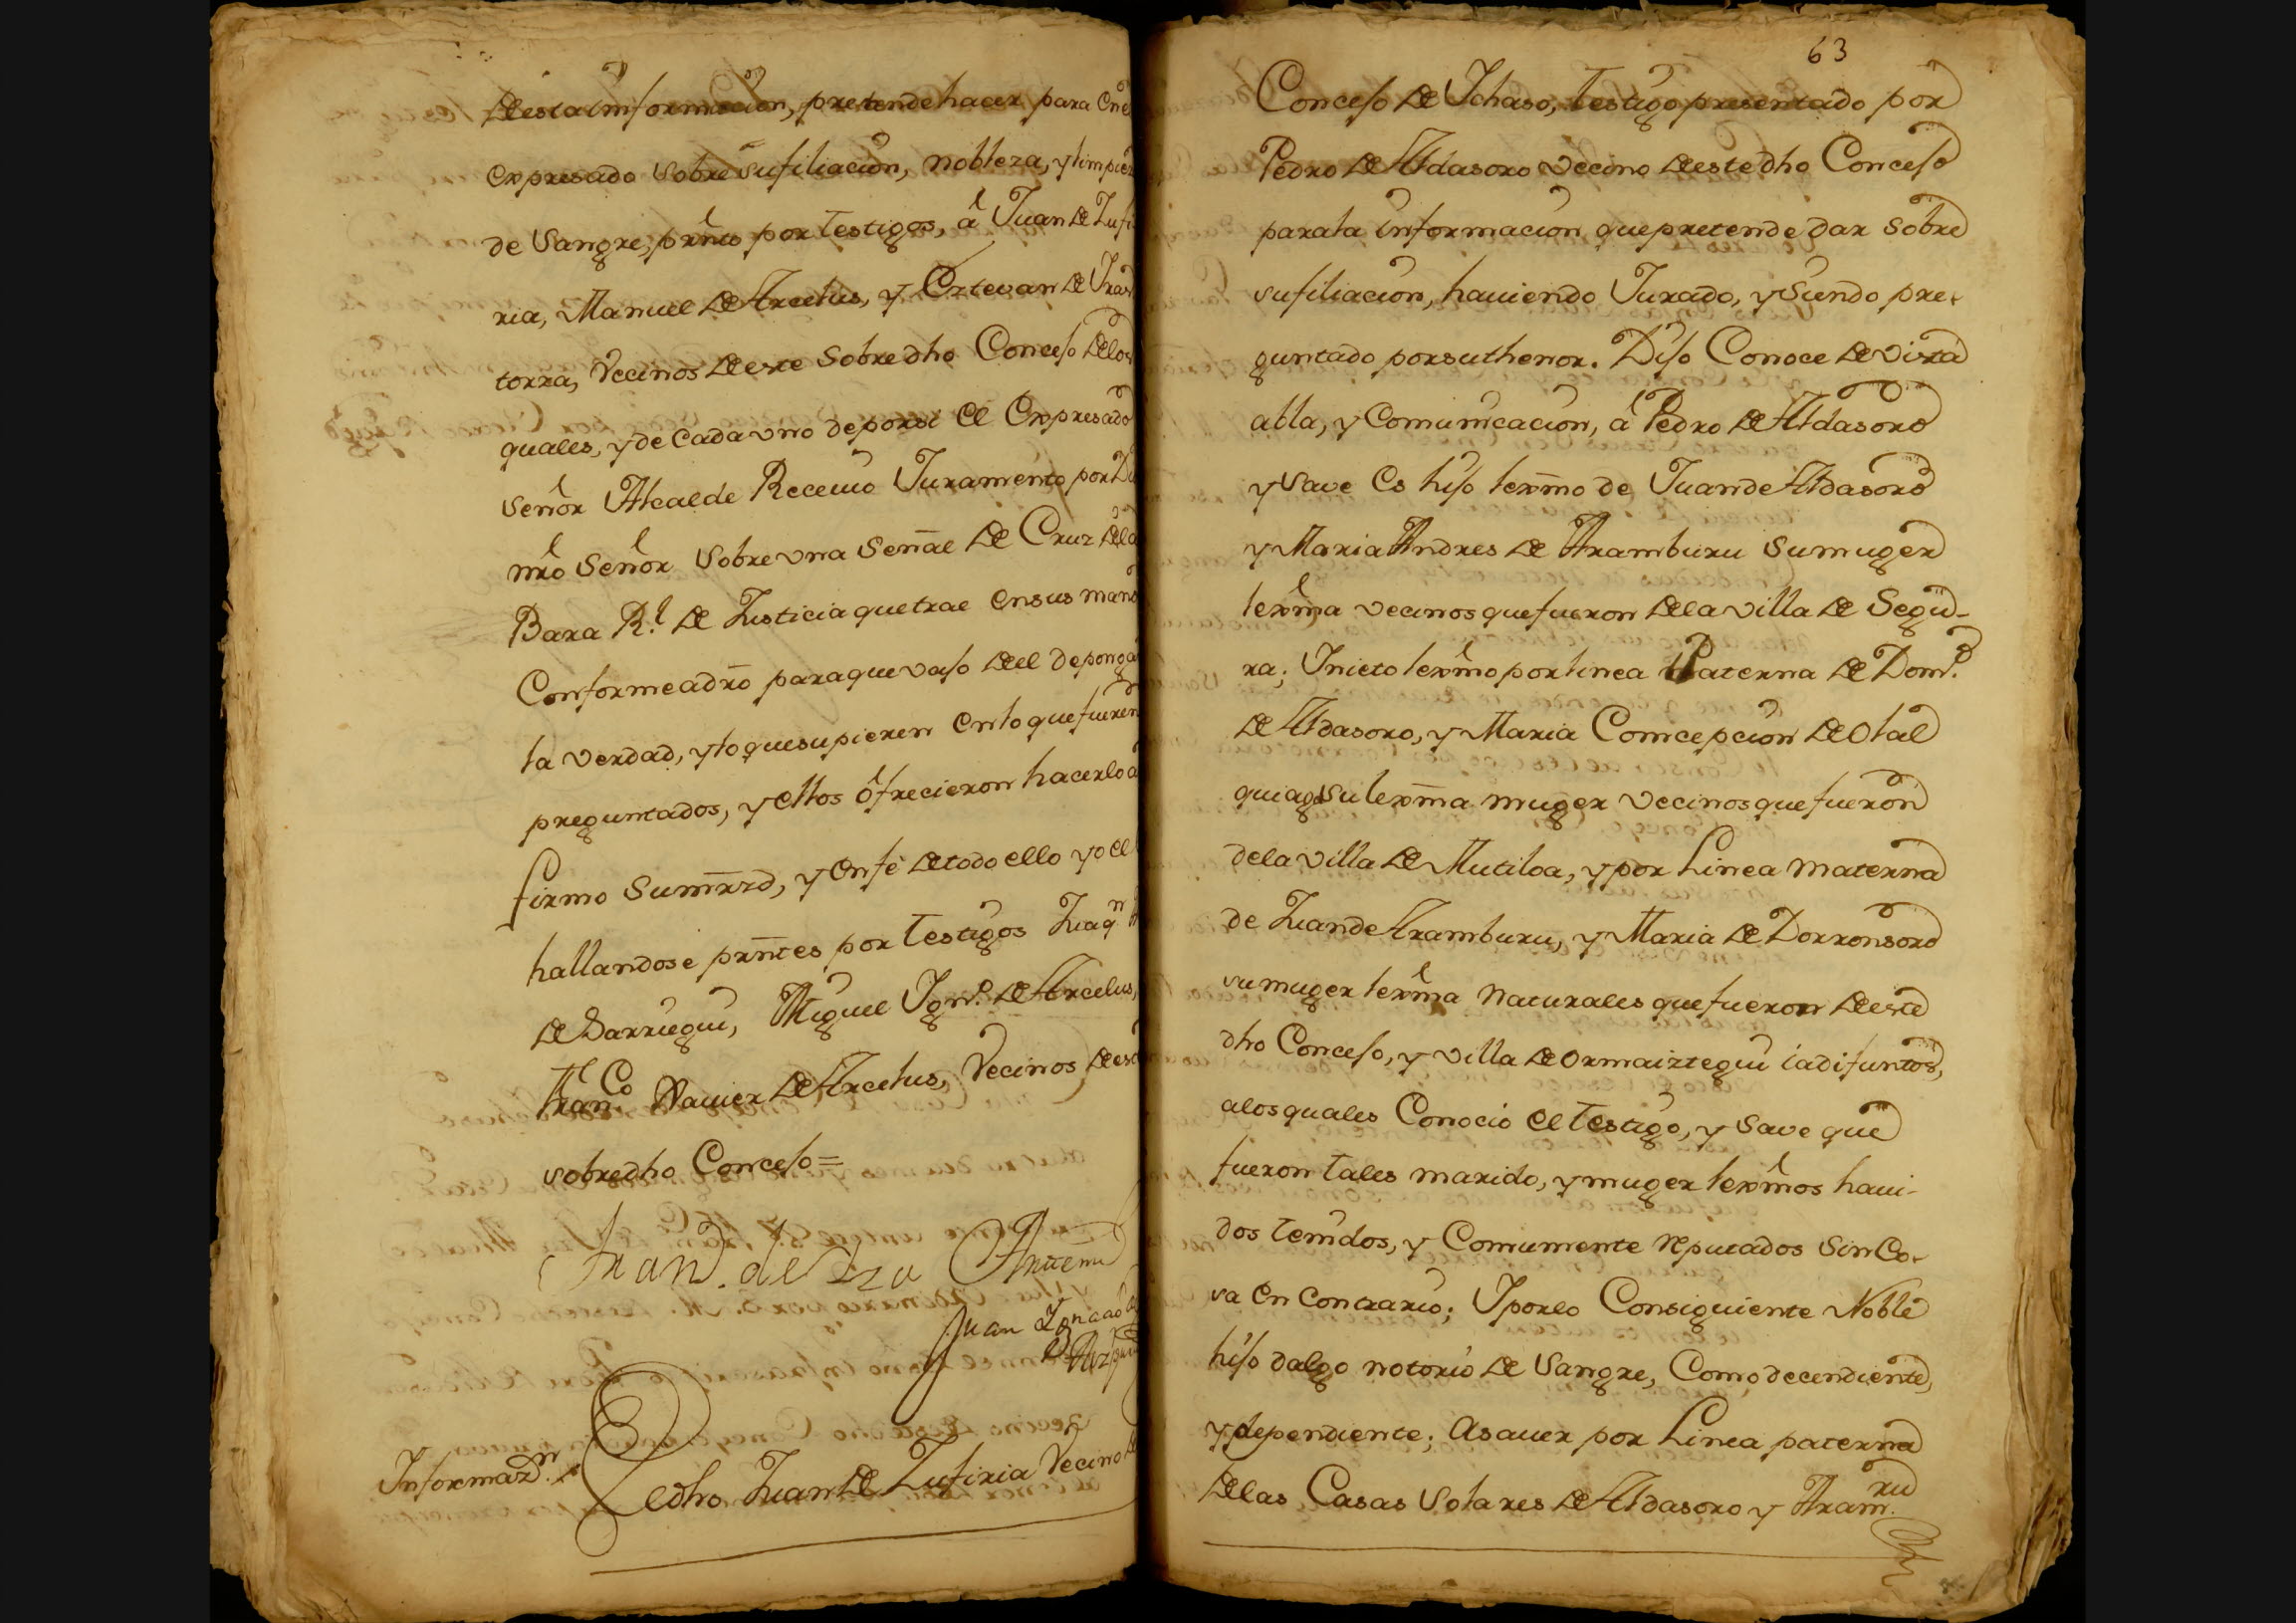 de esta informacion, pretende hacer para en el
expresado sobre su filiacion, nobleza, y limpiez
de Sangre, prnto por testigos, â Juan de Zufi
ria, Manuel de Arcelus, y Estevan de
torra, Vecinos de este sobre dho Concejo de los
quales, y de cada vno de por si el expresado
señor Alcalde Recevio Juramento por Di
nro Señor sobre vna señal de Cruz de la
Bara Rl. de Justicia que trae en sus mano
Conforme a dro para que vajo de el deponga
la verdad, y lo que supieren en lo que fueren
preguntados, y ellos ôfrecieron hacerlo a
firmo su mrzd, y en fé de todo ello yo el
hallandose prntes por testigos Juaqn
de Darruegui, Miguel Ignº. de Arcelus,
Franco. Xavier de Arcelus, Vecinos de este
sobredho Concejo =
Juan. de Antemi
Juan Ignacio
Informazn.
El dho Juan de Zufiria Vecino de
63
Concejo de Ichaso, testigo presentado por
Pedro de Aldasoro vecino de este dho Concejo
para la informacion que pretende dar sobre
su filiacion, haviendo Jurado, y siendo pre-
guntado por su thenor. Dijo Conoce de vista
abla, y Comunicacion, â Pedro de Aldasoro
y save es hijo lexmo de Juan de Aldasoro
y Maria Andres de Aramburu su muger
lexma vecinos que fueron de la villa de Segu-
ra; I nieto lexmo por linea Paterna de Domº.
de Aldasoro, y Maria Comcepcion de Olal
quiaga su lexma muger vecinos que fueron
de la villa de Mutiloa, y por Linea materna
de Juan de Aramburu, y Maria de Dorronsoro
su muger lexma Naturales que fueron de este
dho Concejo, y villa de Ormaiztegui ia difuntos,
a los quales Conocio el testigo, y save que
fueron tales marido, y muger lexmos havi-
dos tenidos, y Comumente reputados sin Co-
sa en contrario; I por lo Consiguiente Noble
hijo dalgo notorio de Sangre, Como decendiente,
y dependiente; asaver por Linea paterna
de las Casas Solares de Aldasoro y Aram.ru